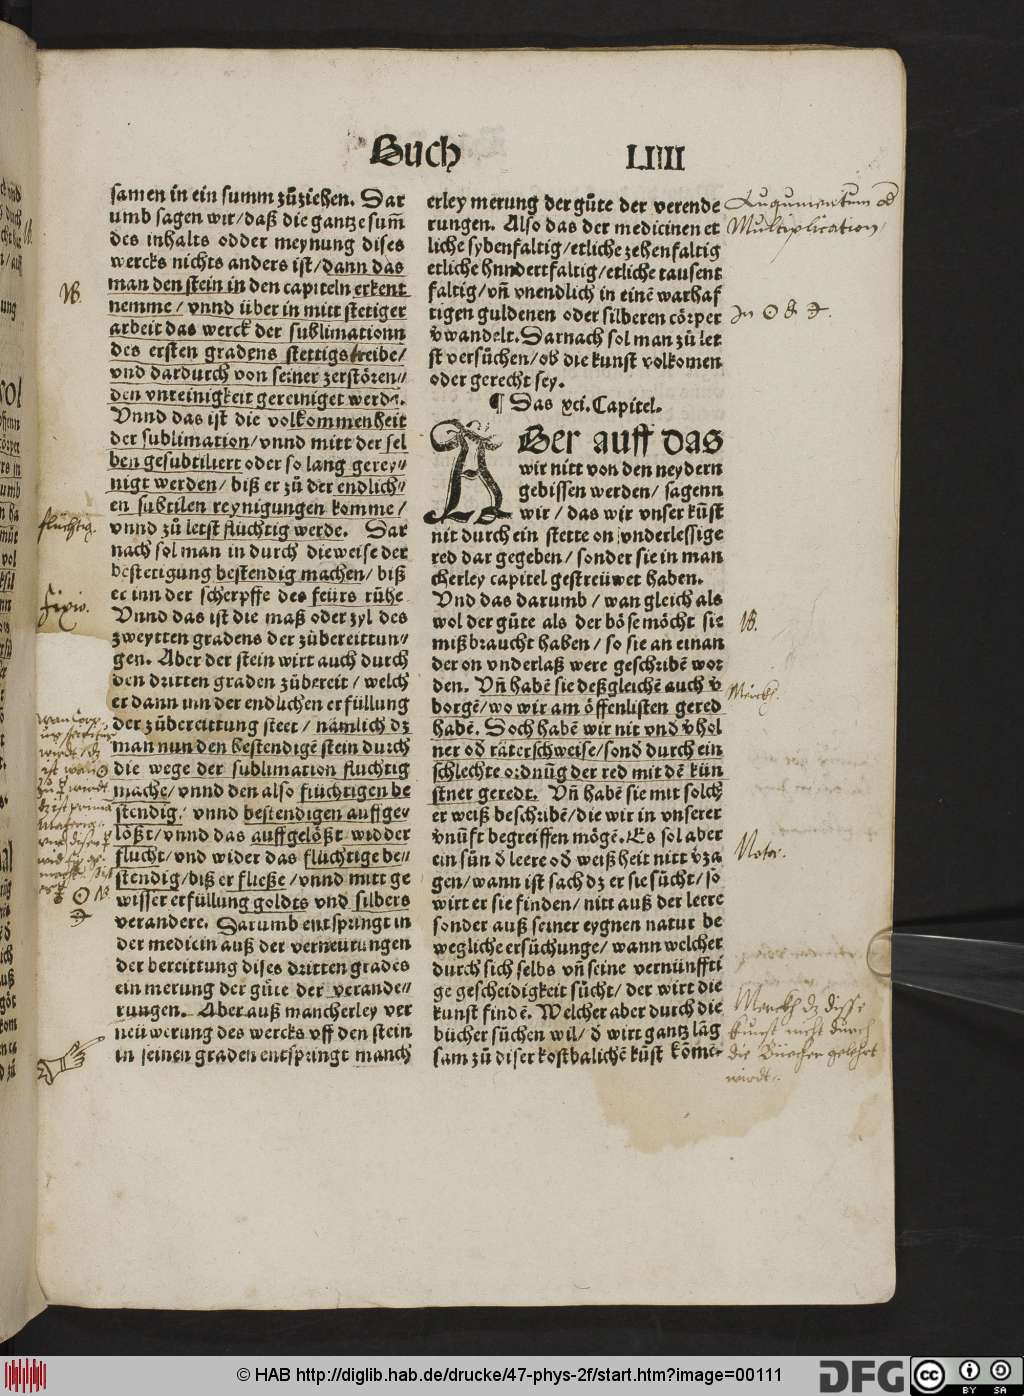 Buch LIIII
samen in ein summ zůziehen. Dar
umb sagen wir/daß die gantze sum̃
des inhalts odder meynung dises
wercks nichts anders ist/dann das
man den stein in den capiteln erkent
nemme/ vnnd über in mitt stetiger
arbeit das werck der sublimationn
des ersten gradens stettigs treibe/
vnd dardurch von seiner zerstören⸗
den vnreinigkeit gereiniget werde.
Vnnd das ist die volkommenheit
der sublimation/vnnd mitt der sel
ben gesubtiliert oder so lang gerey⸗
nigt werden/ biß er zů der endlich⸗
en subtilen reynigungen komme/
vnnd zů letst fluchtig werde. Dar
nach sol man in durch die weise der
bestetigung bestendig machen/ biß
er inn der scherpffe des feürs rühe
Vnnd das ist die maß oder zyl des
zweytten gradens der zůbereittun⸗
gen. Aber der stein wirt auch durch
den dritten graden zůbereit/ welch
er dann inn der endlichen erfüllung
der zůbereittung steet/ nämlich dz
man nun den bestendigē stein durch
die wege der sublimation fluchtig
mache/vnnd den also flüchtigen be
stendig/ vnnd bestendigen auffge⸗
lößt/vnnd das auffgelößt widder
flucht/vnd wider das flüchtige be⸗
stendig/biß er fließe/vnnd mitt ge
wisser erfüllung goldts vnd silbers
verandere. Darumb entspringt in
der medicin auß der verneurungen
der bereittung dises dritten grades
ein merung der güte der verande⸗
rungen. Aber auß mancherley ver
neüwerung des wercks vff den stein
in seinen graden entspringt manch
erley merung der gůte der verende
rungen. Also das der medicinen et
liche sybenfaltig/etliche zehenfaltig
etliche hnndertfaltig/etliche tausent
faltig/vn̄ vnendlich in einē warhaf
tigen guldenen oder silberen cörper
v̄wandelt. Darnach sol man zů let
st versůchen/ob die kunst volkomen
oder gerecht sey.
¶ Das xci. Capitel.
ABer auff das
wir nitt von den neydern
gebissen werden/ sagenn
wir/ das wir vnser kūst
nit durch ein stette on vnderlessige
red dar gegeben/ sonder sie in man
cherley capitel gestreüwet haben.
Vnd das darumb/ wan gleich als
wol der gůte als der böse möcht sie
mißbraucht haben/ so sie an einan
der on vnderlaß were geschribē wor
den. Vn̄ habē sie deßgleichē auch v̄
borgē/wo wir am öffenlisten gered
habē. Doch habē wir nit vnd v̄hol
ner od̄ räterschweise/sond̄ durch ein
schlechte ordnūg der red mit dē kün
stner geredt. Vn̄ habē sie mit solch
er weiß beschribē/die wir in vnserer
vnūft begreiffen mögē. Es sol aber
ein sūn d̄ leere od̄ weißheit nitt v̄za
gen/wann ist sach dz er sie sůcht/ so
wirt er sie finden/ nitt auß der leere
sonder auß seiner eygnen natur be
wegliche ersůchunge/ wann welcher
durch sich selbs vn̄ seine vernünffti
ge gescheidigkeit sůcht/ der wirt die
kunst findē. Welcher aber durch die
bücher sůchen wil/ d̄ wirt gantz lāg
sam zů diser kostbalichē kūst kōmē⸗
NB.
flüchtig.
Fixio.
Multiplication/
In ☉ & ☽.
NB.
Merckh.
Nota.
Merckh dz disse
kunst nicht durch
die Büecher gelehrt
wirdt.
© HAB http://diglib.hab.de/drucke/47-phys-2f/start.htm?image=00111
DFG
cc BY SA